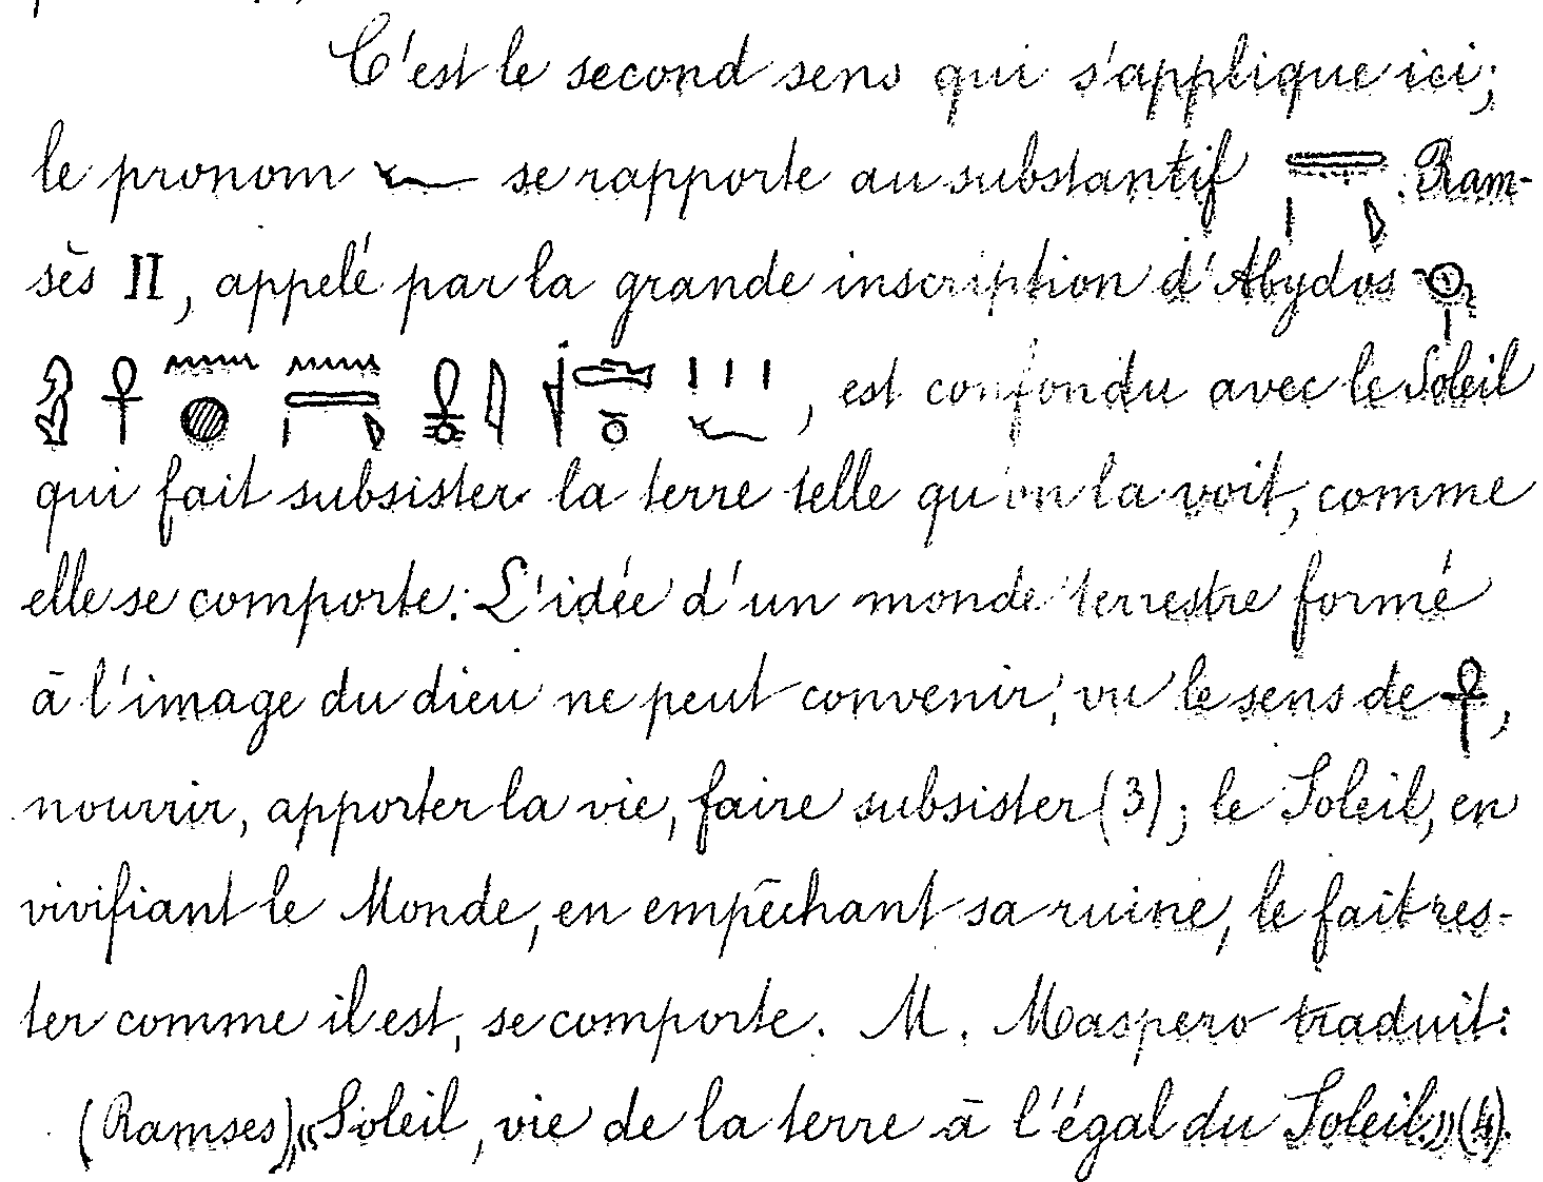 C'est le second sens qui s'applique ici;
le pronom 𓆑 se rapporte au substantif 𓇾. Ram-
sès II, appelé par la grande inscription d'Abydos
𓋹 𓈖 𓐍 𓈖, est confondu avec le Soleil
qui fait subsister la terre telle qu'on la voit, comme
elle se comporte. L'idée d'un monde terrestre formé
à l'image du dieu ne peut convenir, vu le sens de 𓋹,
nourrir, apporter la vie, faire subsister (3); le Soleil, en
vivifiant le Monde, en empêchant sa ruine, le fait res-
ter comme il est, se comporte. M. Maspero traduit:
(Ramses), «Soleil, vie de la terre à l'égal du Soleil» (4).